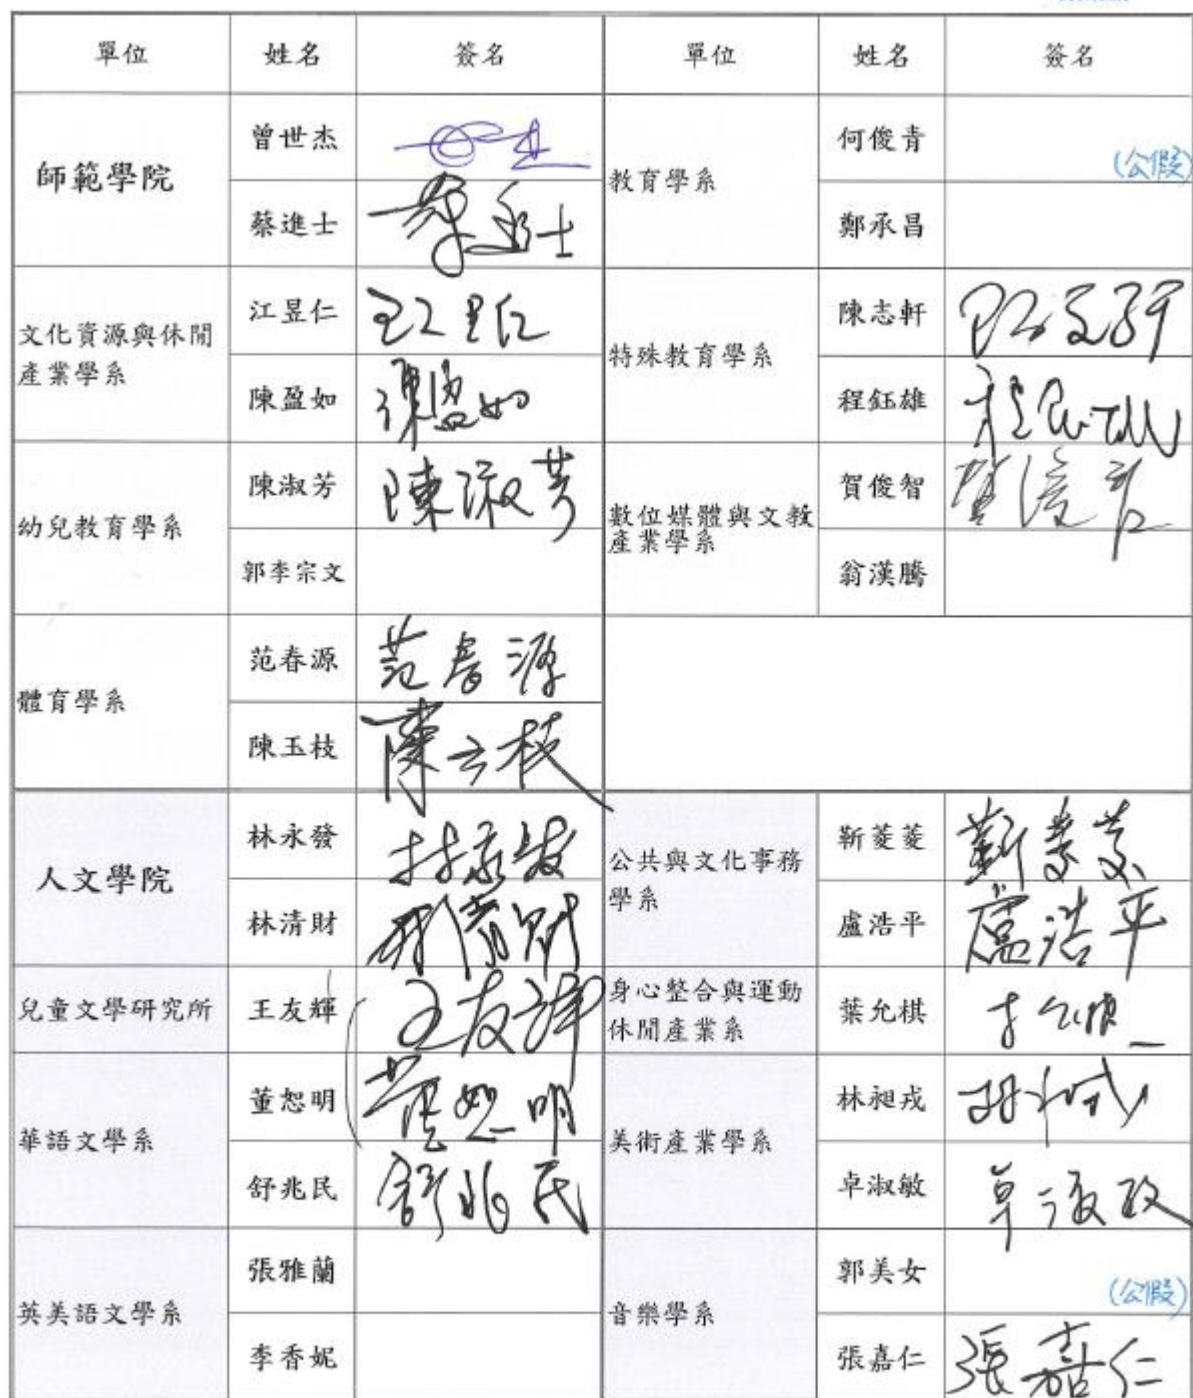 單位 姓名 簽名 單位 姓名 簽名
師範學院 曾世杰 教育學系 何俊青 (公假)
蔡進士 蔡進士 鄭承昌
文化資源與休閒產業學系 江昱仁 江昱仁 特殊教育學系 陳志軒 陳志軒
陳盈如 陳盈如 程鈺雄 程鈺雄
幼兒教育學系 陳淑芳 陳淑芳 數位媒體與文教產業學系 賀俊智 賀俊智
郭李宗文 翁漢騰
體育學系 范春源 范春源
陳玉枝 陳玉枝
人文學院 林永發 林永發 公共與文化事務學系 靳菱菱 靳菱菱
林清財 林清財 盧浩平 盧浩平
兒童文學研究所 王友輝 王友輝 身心整合與運動休閒產業系 葉允棋
華語文學系 董恕明 董恕明 美術產業學系 林昶戎 林昶戎
舒兆民 舒兆民 卓淑敏 卓淑敏
英美語文學系 張雅蘭 音樂學系 郭美女 (公假)
李香妮 張嘉仁 張嘉仁